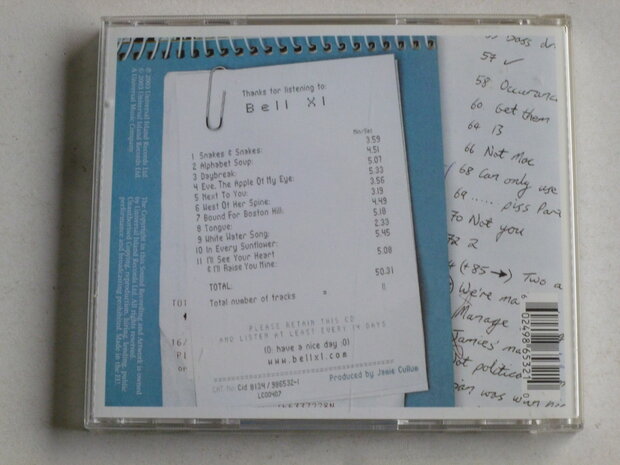 ℗ 2003 Universal Island Records Ltd.
© 2003 Universal Island Records Ltd.
A Universal Music Company.
The Copyright in this Sound Recording and Artwork is owned
by Universal Island Records Ltd. All rights reserved.
Unauthorised Copying, reproduction, hiring, lending, public
performance and broadcasting prohibited. Made in the EU.
Thanks for listening to:
Bell X1
Min/Sec
1 Snakes & Snakes: 3.59
2 Alphabet Soup: 4.51
3 Daybreak: 5.07
4 Eve, The Apple Of My Eye: 5.33
5 Next To You: 3.56
6 West Of Her Spine: 3.19
7 Bound For Boston Hill: 4.49
8 Tongue: 5.18
9 White Water Song: 2.33
10 In Every Sunflower: 5.45
11 I'll See Your Heart
& I'll Raise You Mine: 5.08
TOTAL: 50.31
Total number of tracks = 11
PLEASE RETAIN THIS CD
AND LISTEN AT LEAST EVERY 14 DAYS
(O: have a nice day :O)
www.bellx1.com
CAT. No: Cid 8129 / 986532-1
Produced by Jamie Cullum
LC00407
TOT
57 ✓
58
60 Get them
64 13
66 Not Moe
68 Can only use
69 ..... piss
70 Not you
72 2
(+85 →) Two
We're
Manage
James' ma
Not politica
was wan
6 02498 65321 0